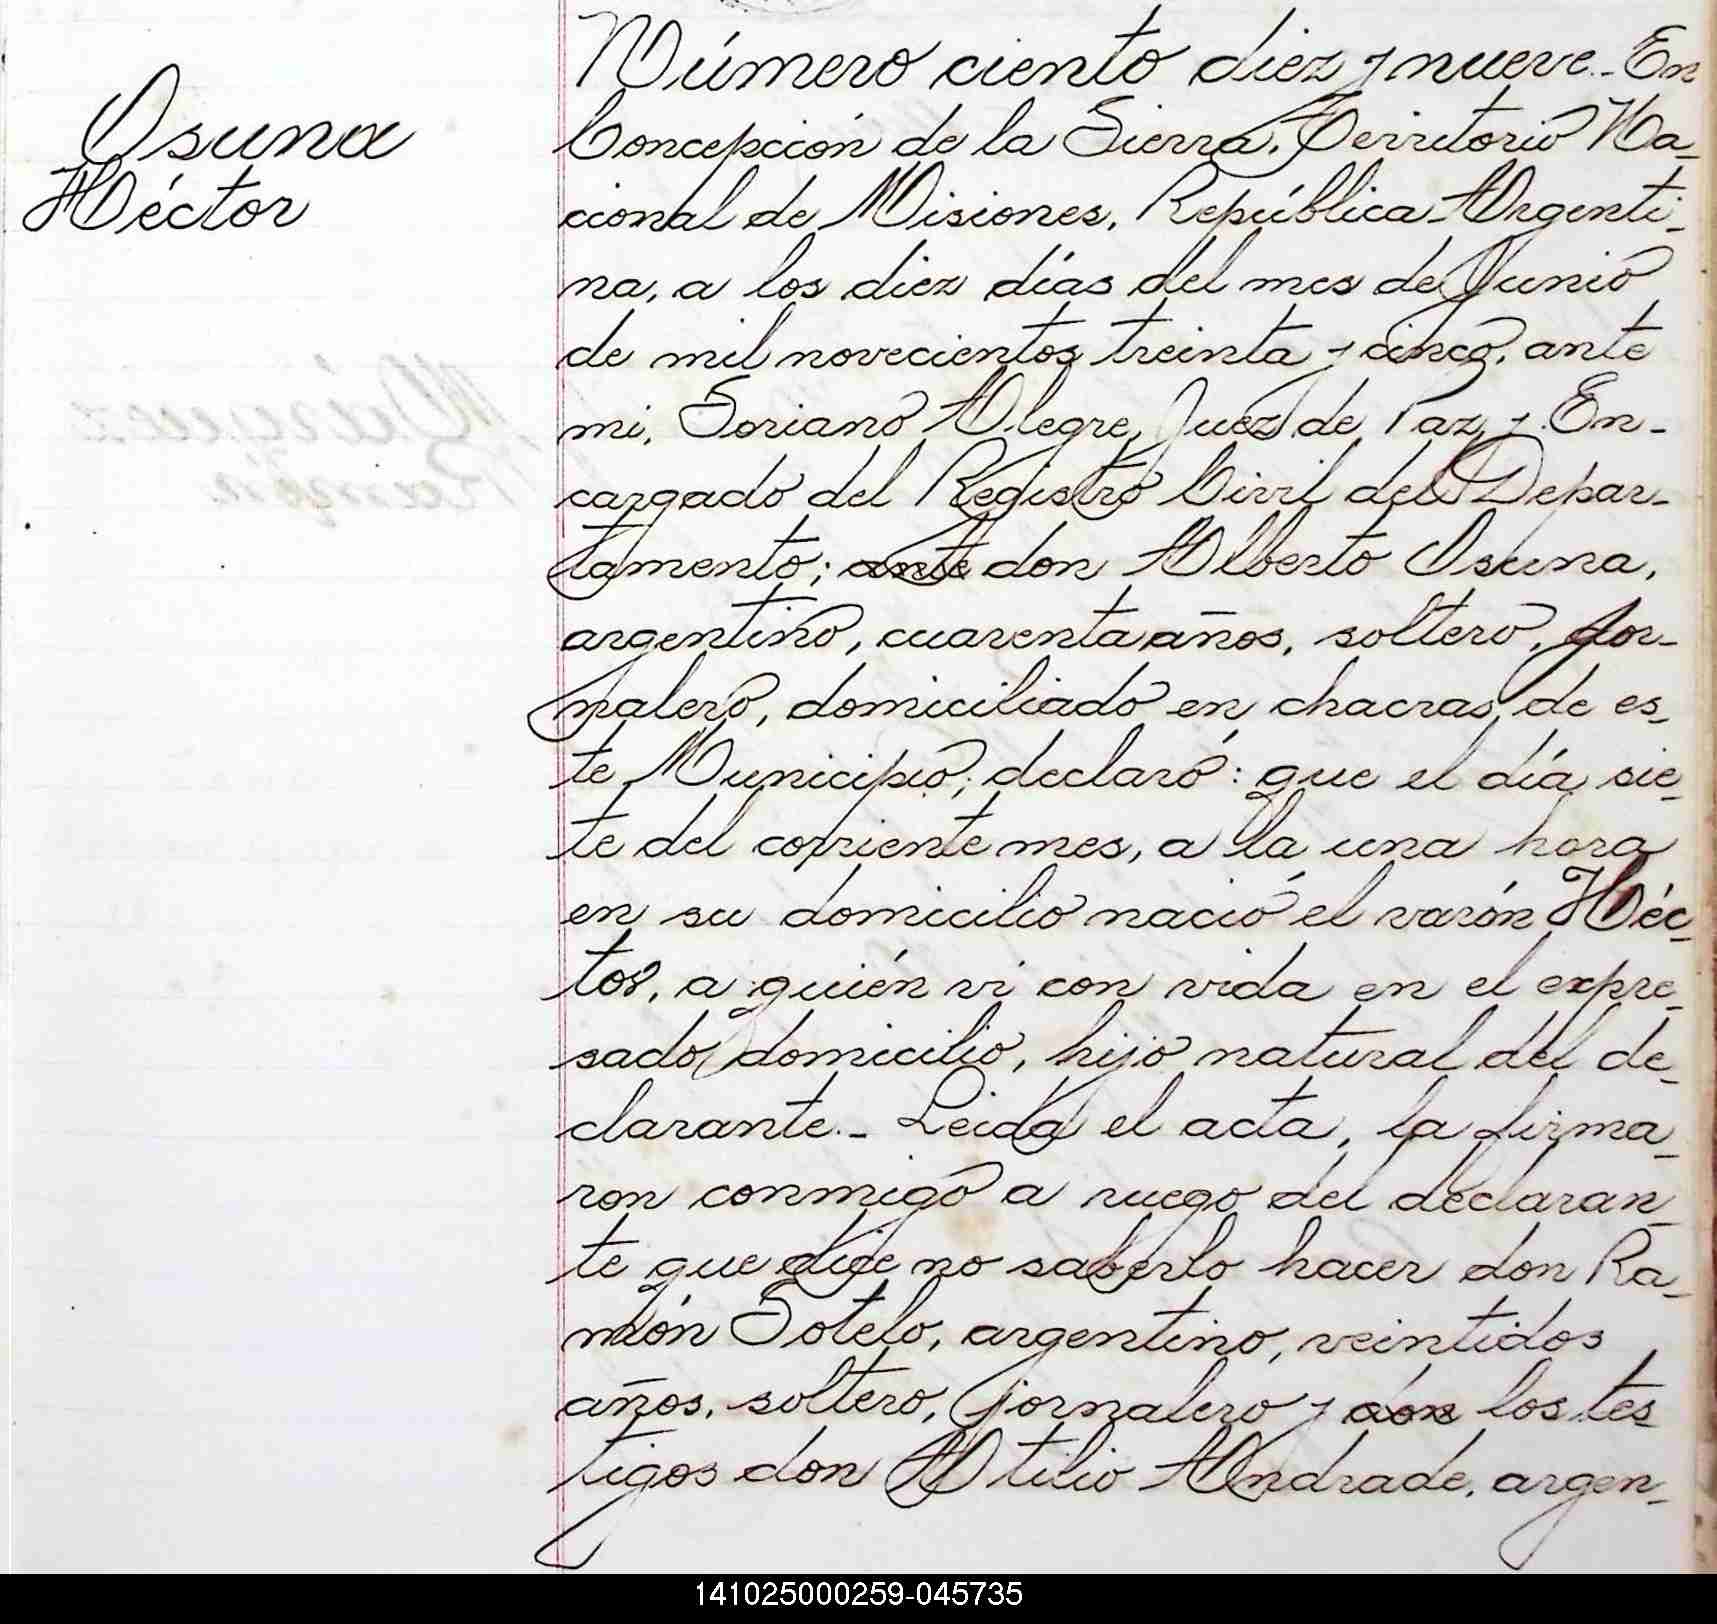 Osuna
Héctor
Número ciento diez y nueve.- En
Concepción de la Sierra, Territorio Na-
cional de Misiones, República Argenti-
na, a los diez días del mes de Junio
de mil novecientos treinta y cinco, ante
mi, Soriano Alegre, Juez de Paz y En-
cargado del Registro Civil del Depar-
tamento; ante don Alberto Osuna,
argentino, cuarenta años, soltero, jor-
nalero, domiciliado en chacras de es-
te Municipio; declaró: que el día sie-
te del corriente mes, a la una hora
en su domicilio nació el varón Héc-
tor, a quién vi con vida en el expre-
sado domicilio, hijo natural del de-
clarante.- Leida el acta, la firma-
ron conmigo a ruego del declaran-
te que dice no saberlo hacer don Ra-
món Sotelo, argentino, veintidos
años, soltero, jornalero y con los tes
tigos don Atilio Andrade, argen-
141025000259-045735